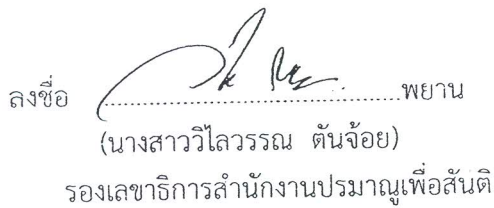 ลงชื่อ ........................................................พยาน
(นางสาววิไลวรรณ ตันจ้อย)
รองเลขาธิการสำนักงานปรมาณูเพื่อสันติ